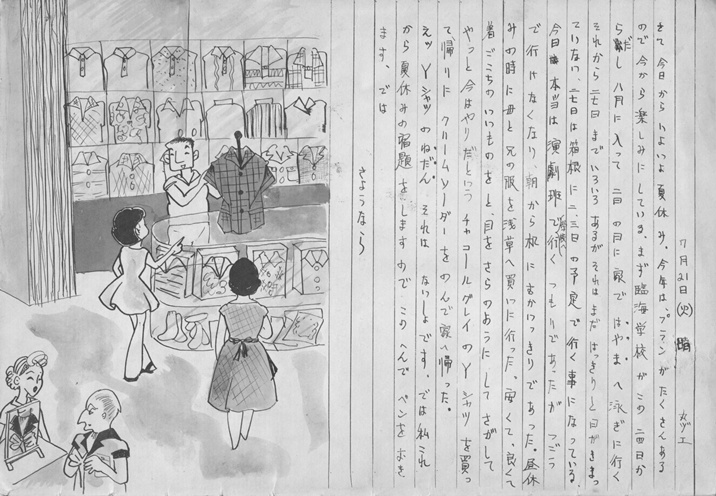 7月21日(火)晴 カヅエ
さて今日からいよいよ夏休み、今年はプランがたくさんある
ので今から楽しみにしている。まず臨海学校がこの二四日か
らだし八月に入って二日の日に家ではやまへ泳ぎに行く
それから二七日までいろいろあるがそれはまだはっきりと日がきまっ
ていない、二七日は箱根に二、三日の予定で行く事になっている。
今日本当は演劇班で行くつもりであったがつごう
で行けなくなり、朝から机にむかいっきりであった。昼休
みの時に母と兄の服を浅草へ買いに行った、安くて、良くて
着ごこちのいいものをと、目をさらのようにしてさがして
やっと今はやりだというチャコールグレイのYシャツを買っ
て帰りにクリームソーダーをのんで家へ帰った。
えッYシャツのねだん、それはないしょです。では私これ
から夏休みの宿題をしますのでこのへんでペンをおき
ます、では
さようなら